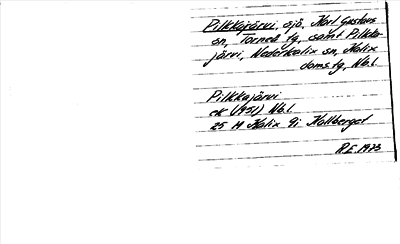 Pilkkajärvi, sjö, Karl Gustavs
sn, Torneå tg, samt Pilkka-
järvi, Nederkalix sn, Kalix
doms.tg, Nb.l.
Pilkkajärvi
ek (1951) Nb.l.
25 M Kalix 9i Kallberget
R.E. 1973